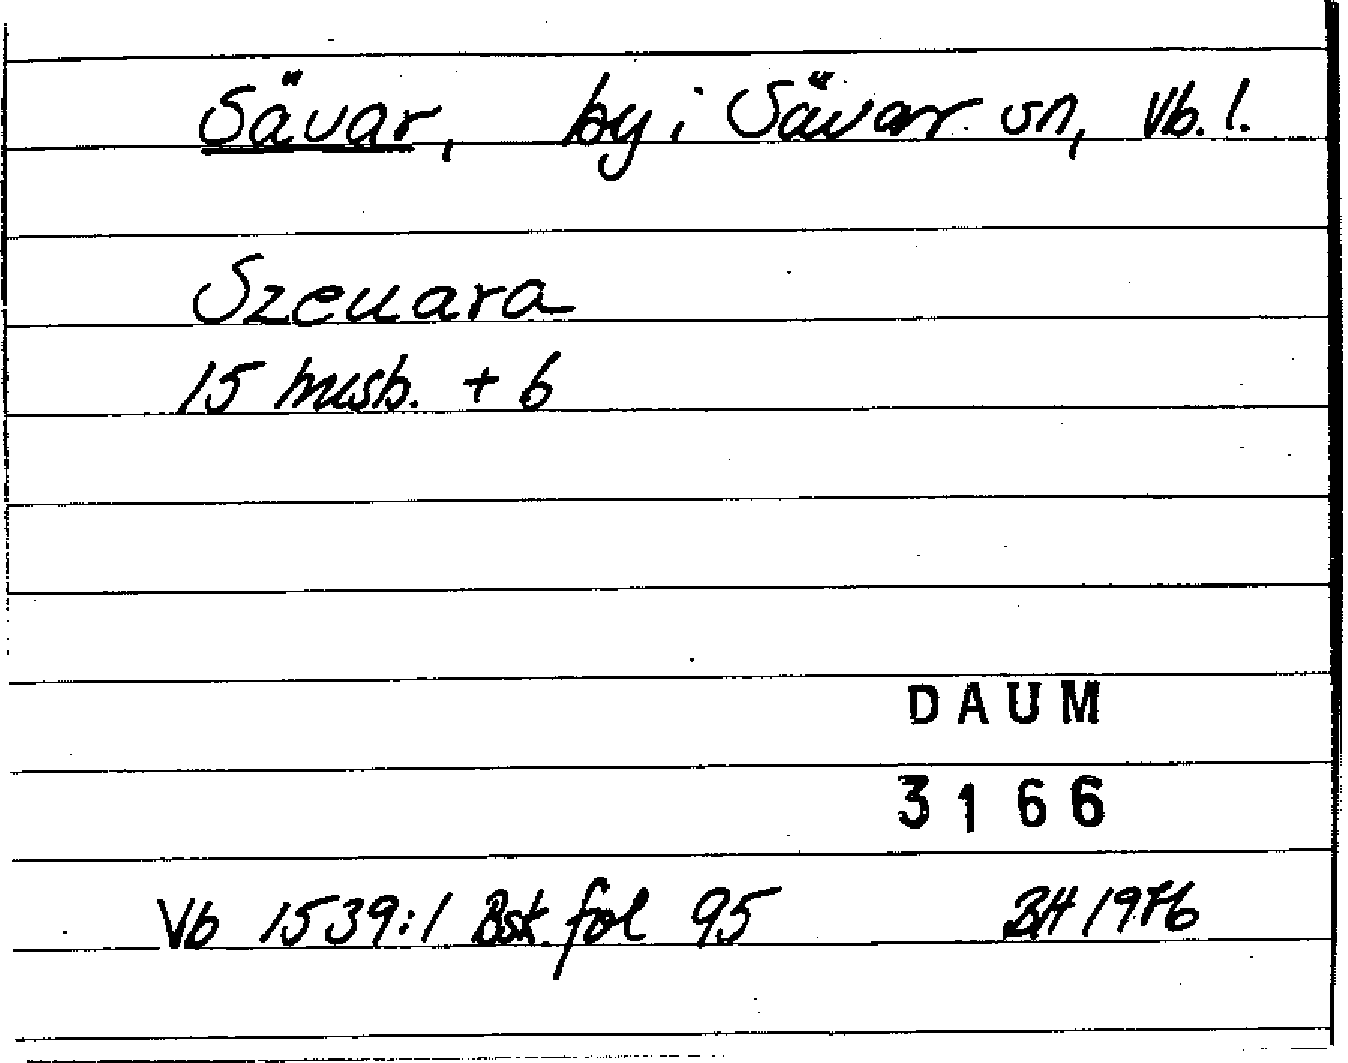 Sävar, by i Sävar sn, Vb. l.
Szeuara
15 husb. + 6
DAUM
3166
Vb 1539:1 Bsk. fol 95 BH 1976